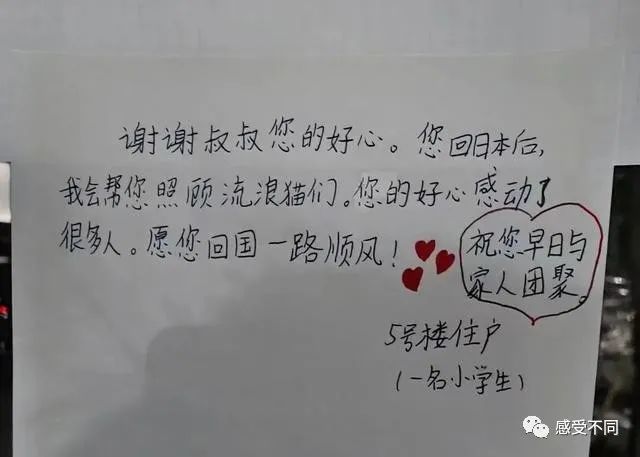 谢谢叔叔您的好心。您回日本后,
我会帮您照顾流浪猫们。您的好心感动了
很多人。愿您回国一路顺风!
祝您早日与
家人团聚。
5号楼住户
(一名小学生)
感受不同